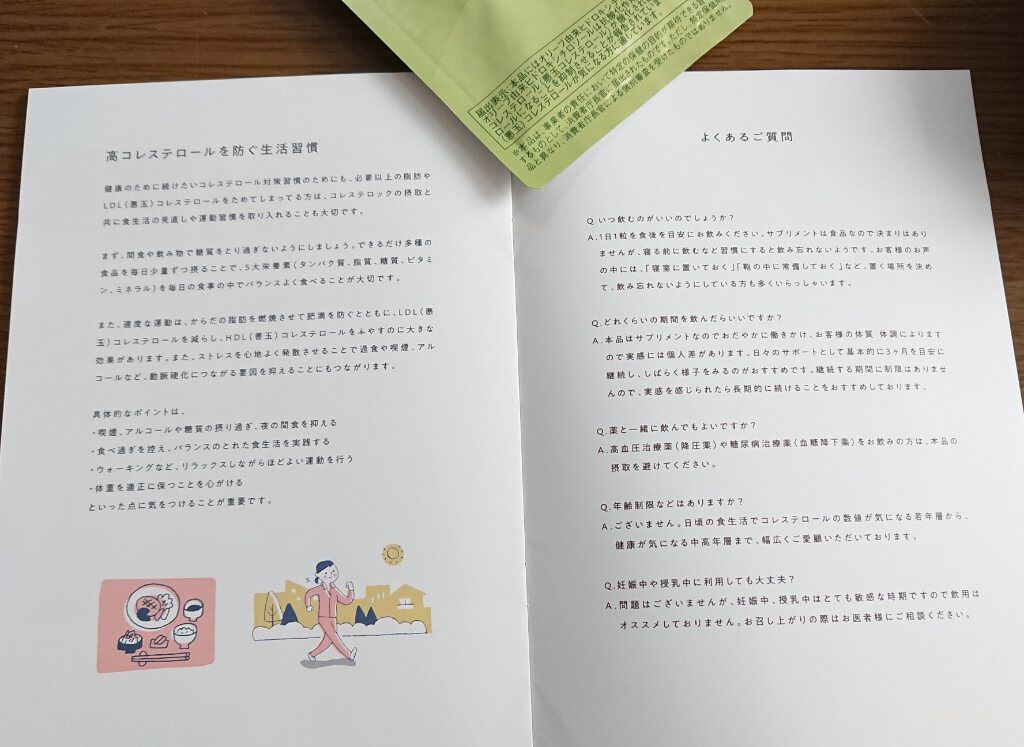 高コレステロールを防ぐ生活習慣
健康のために続けたいコレステロール対策習慣のためにも、必要以上の脂肪や
LDL(悪玉)コレステロールをためてしまってる方は、コレステロックの摂取と
共に食生活の見直しや運動習慣を取り入れることも大切です。
まず、間食や飲み物で糖質をとり過ぎないようにしましょう。できるだけ多種の
食品を毎日少量ずつ摂ることで、5大栄養素(タンパク質、脂質、糖質、ビタミ
ン、ミネラル)を毎日の食事の中でバランスよく食べることが大切です。
また、適度な運動は、からだの脂肪を燃焼させて肥満を防ぐとともに、LDL(悪
玉)コレステロールを減らし、HDL(善玉)コレステロールをふやすのに大きな
効果があります。また、ストレスを心地よく発散させることで過食や喫煙、アル
コールなど、動脈硬化につながる要因を抑えることにもつながります。
具体的なポイントは、
・喫煙、アルコールや糖質の摂り過ぎ、夜の間食を抑える
・食べ過ぎを控え、バランスのとれた食生活を実践する
・ウォーキングなど、リラックスしながらほどよい運動を行う
・体重を適正に保つことを心がける
といった点に気をつけることが重要です。
よくあるご質問
Q.いつ飲むのがいいのでしょうか?
A.1日1粒を食後を目安にお飲みください。サプリメントは食品なので決まりはあり
ませんが、寝る前に飲むなど習慣にすると飲み忘れないようです。お客様のお声
の中には、「寝室に置いておく」「鞄の中に常備しておく」など、置く場所を決め
て、飲み忘れないようにしている方も多くいらっしゃいます。
Q.どれくらいの期間を飲んだらいいですか?
A.本品はサプリメントなのでおだやかに働きかけ、お客様の体質 体調によります
ので実感には個人差があります。日々のサポートとして基本的に3ヶ月を目安に
継続し、しばらく様子をみるのがおすすめです。継続する期間に制限はありませ
んので、実感を感じられたら長期的に続けることをおすすめしております。
Q.薬と一緒に飲んでもよいですか?
A.高血圧治療薬(降圧薬)や糖尿病治療薬(血糖降下薬)をお飲みの方は、本品の
摂取を避けてください。
Q.年齢制限などはありますか?
A.ございません。日頃の食生活でコレステロールの数値が気になる若年層から、
健康が気になる中高年層まで、幅広くご愛顧いただいております。
Q.妊娠中や授乳中に利用しても大丈夫?
A.問題はございませんが、妊娠中、授乳中はとても敏感な時期ですので飲用は
オススメしておりません。お召し上がりの際はお医者様にご相談ください。
届出表示:本品にはオリーブ由来ヒドロキシ